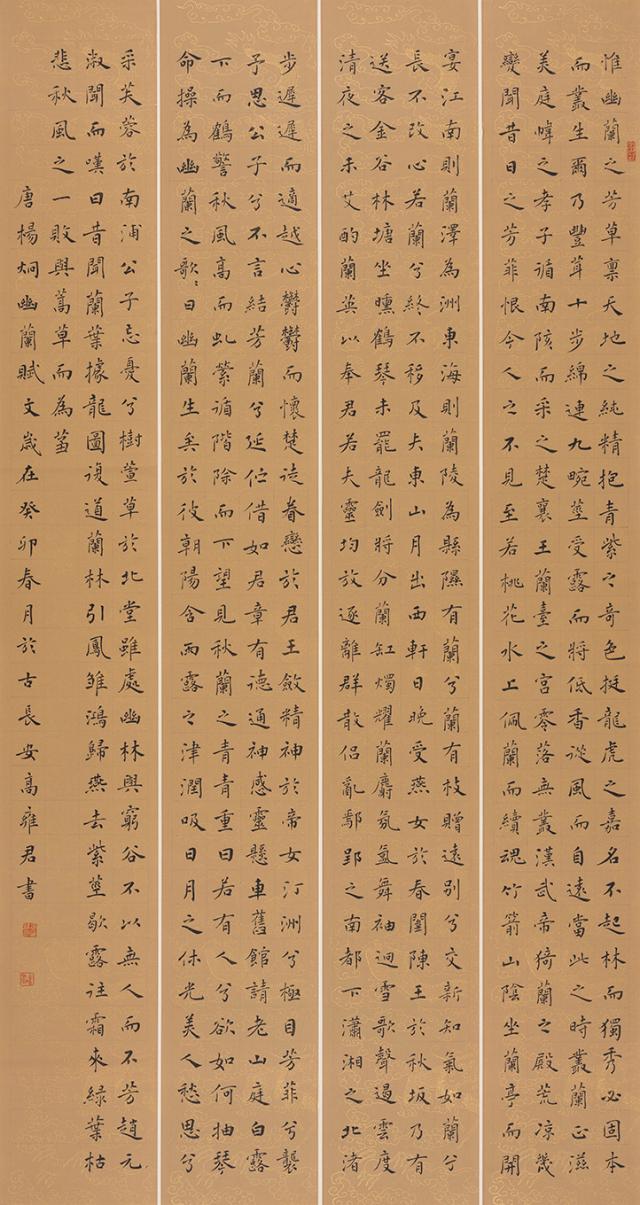 惟幽蘭之芳草禀天地之純精抱青紫之奇色挺龍虎之嘉名不起林而獨秀必固本
而叢生爾乃豐茸十步綿連九畹莖受露而將低香從風而自遠當此之時叢蘭正滋
美庭幃之孝子循南陔而采之楚襄王蘭臺之宮零落無叢漢武帝猗蘭之殿荒凉幾
變聞昔日之芳菲恨今人之不見至若桃花水上佩蘭而續魂竹箭山陰坐蘭亭而開
宴江南則蘭澤為洲東海則蘭陵為縣隰有蘭兮蘭有枝贈遠別兮交新知氣如蘭兮
長不改心若蘭兮終不移及夫東山月出西軒日晚受燕女於春閨陳王於秋坂乃有
送客金谷林塘坐曛鶴琴未罷龍劍將分蘭缸燭耀蘭麝氛氳舞袖迴雪歌聲遏雲度
清夜之未艾酌蘭英以奉君若夫靈均放逐離群散侶亂鄢郢之南都下瀟湘之北渚
步遲遲而適越心鬱鬱而懷楚徒眷戀於君王斂精神於帝女汀洲兮極目芳菲兮襲
予思公子兮不言結芳蘭兮延佇借如君章有德通神感靈懸車舊館請老山庭白露
下而鶴警秋風高而虬縈循階除而下望見秋蘭之青青重曰若有人兮欲如何抽琴
命操為幽蘭之歌〻曰幽蘭生矣於彼朝陽含雨露之津潤吸日月之休光美人愁思兮
采芙蓉於南浦公子忘憂兮樹萱草於北堂雖處幽林與窮谷不以無人而不芳趙元
淑聞而嘆曰昔聞蘭葉據龍圖復道蘭林引鳳雛鴻歸燕去紫莖歇露往霜來綠葉枯
悲秋風之一敗與蒿草而為芻
唐楊炯幽蘭賦文歲在癸卯春月於古長安高雍君書